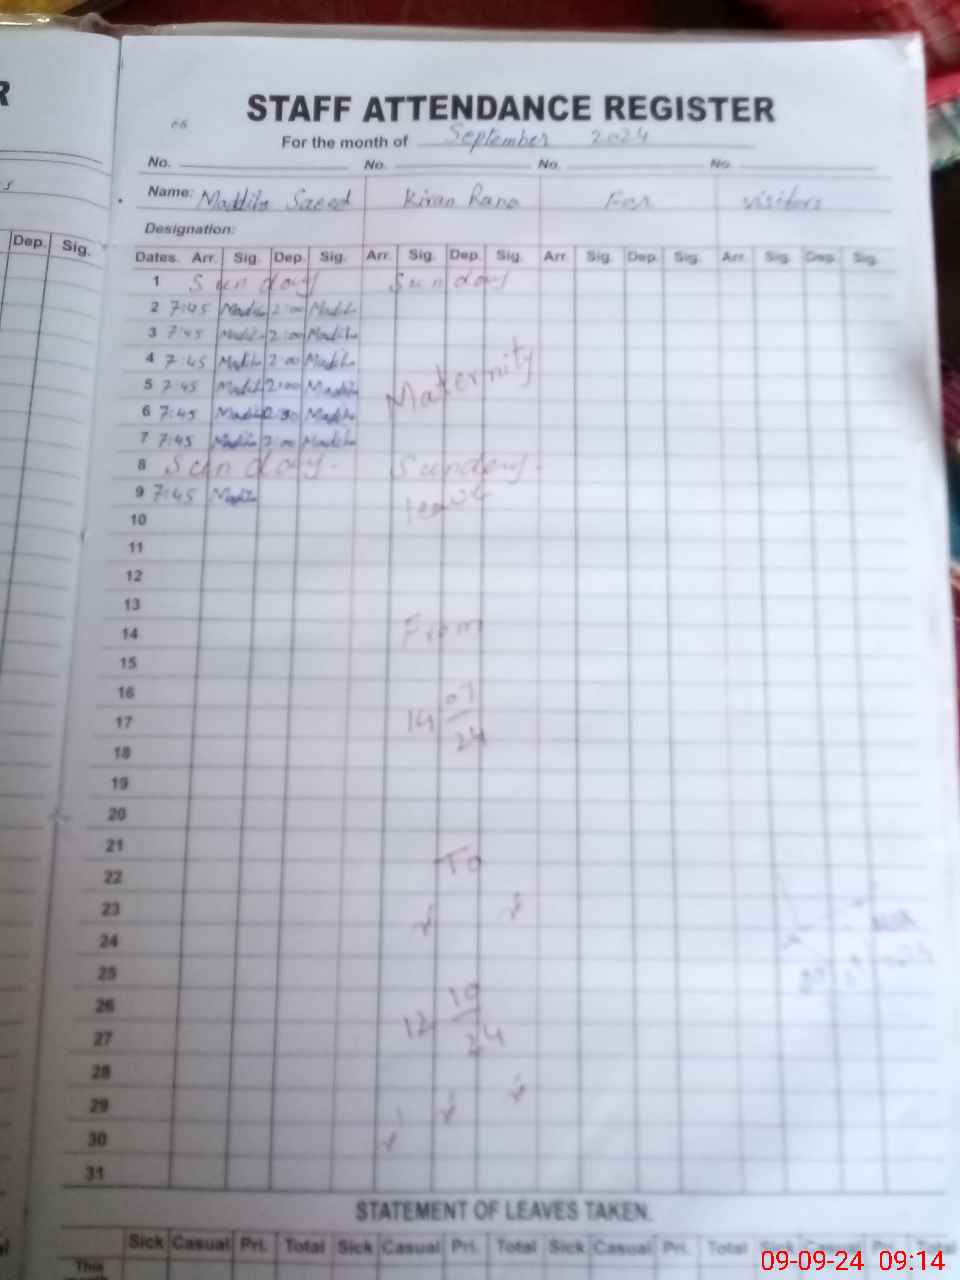 R
STAFF ATTENDANCE REGISTER
For the month of September 2024
No. No. No. No.
Name: Madiha Saeed Kiran Rana For visitors
Designation:
Dep. Sig.
Dates. Arr. Sig. Dep. Sig. Arr. Sig. Dep. Sig. Arr. Sig. Dep. Sig. Arr. Sig. Dep. Sig.
1 Sunday Sunday
2 7:45 Madiha 2:00 Madiha
3 7:45 Madiha 2:00 Madiha
4 7:45 Madiha 2:00 Madiha Maternity
5 7:45 Madiha 2:00 Madiha
6 7:45 Madiha Madiha
7 7:45 Madiha 2:00 Madiha
8 Sunday Sunday
9 7:45 Madiha leave
10
11
12
13
14 From
15
16 07
17 14
18 24
19
20
21
22 To
23
24
25
26 10
27 12 24
28
29
30
31
STATEMENT OF LEAVES TAKEN.
Sick Casual Pri. Total Sick Casual Pri. Total Sick Casual Pri. Total Sick Casual Pri. Total
This
month
09-09-24 09:14